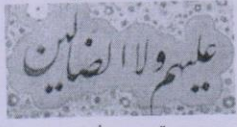 علیهم ولا الضالین